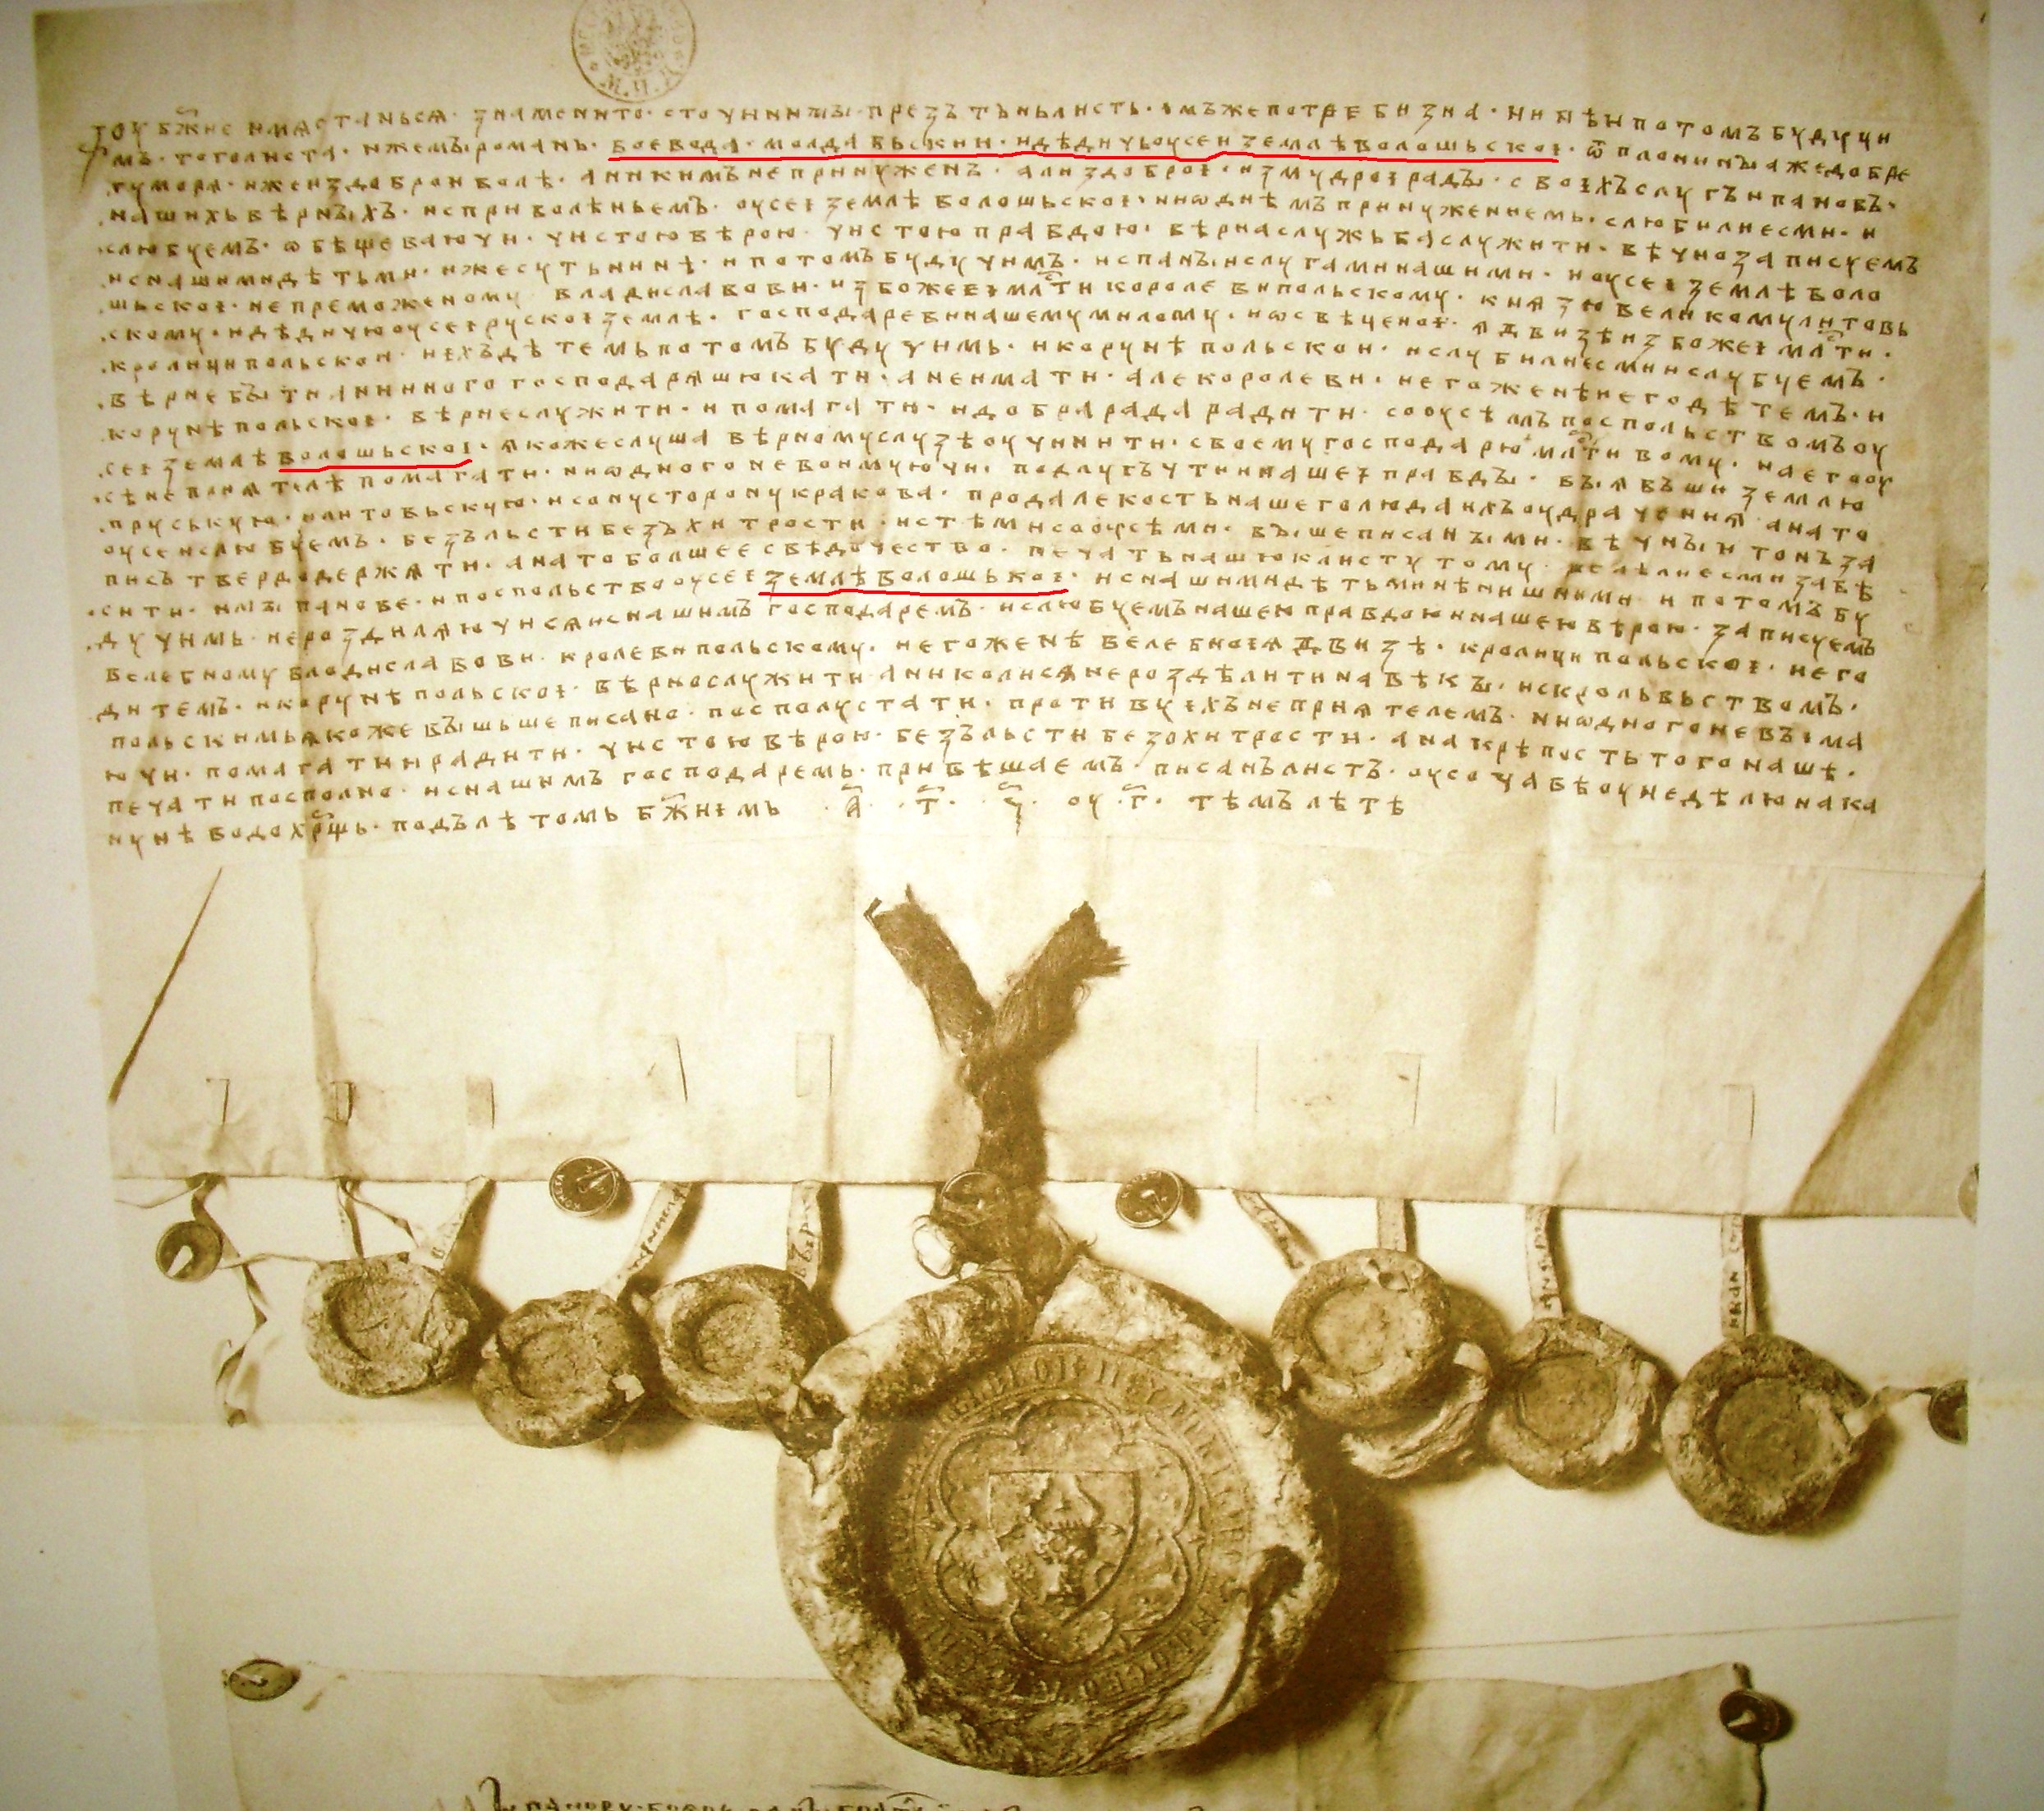 тоу бж҃ие имѧ станьсѧ · знаменито · сто учинимъ · презъ тъньлисть · імъже потребизна · нинѣ и потомъ будучи
мъ · того листа · иже мъі романъ · воевода · молдавьскии · и дѣдичь оусеи землѣ волошьскоі · ѿ планинъі аже до бре
гу морѧ · иже из доброи волѣ · а никимъ не принуженъ · али з доброі · и з мудроі радъі · своіхъ слугъ и пановъ ·
нашихъ вѣрнъіхъ · и с приволѣньемъ · оусеі землѣ волошьскоі · ни ѡднѣмъ принуженнемь · слюбили есми · и
слюбуемъ · ѡбѣщеваючи · чистою вѣрою · чистою правдою · вѣрна служьба служити · вѣчно записуемъ
и с нашими дѣтьми · иже суть нинѣ · и потомъ будучимъ · и с панъі и слугами нашими · и оусеі землѣ воло
шьскоі · непреможеному · владиславови · из божеі мл҃ти королеви польскому · кнѧзю великому литовь
скому · и дѣдичю оусеі рускоі землѣ · господареви нашему милому · и ѡсвѣченоі · ѧдвизѣ из божеі мл҃ти ·
кролици польскои · и іхъ дѣтемь потомъ будучимь · и корунѣ польскои · и слубили есми и слубуемъ ·
вѣрне бъіти а нинного господарѧ шюкати · а не имати · але королеви · и его женѣ и его дѣтемъ · и
корунѣ польскоі · вѣрне служити · и помагати · и добра рада радити · со оусѣмъ посполъством оу
сеі землѣ волошьскоі · ѧкоже слуша вѣрному слузѣ оучинити · своему господарю мл҃тивому · на его оу
сѣ неприѧтелѣ помагати · ни ѡдного не воимуючи · подлугъ чти нашеі правдъі · бъі ѧвъши землю
пруськую · и литовьскую · и сону сторону кракова · про далекость нашего люда ихъ оудрачениѧ а на то
оусе и слюбуемъ · безъ льсти безъ хитрости · и с тѣми со оусѣми · въішеписанъіми · вѣчнъіи тонъ за
писъ твердо держѧти · а на то болшее свѣдочество · печать нашю к листу тому · велѣли есми завѣ
сити · и мъі панове · и поспольство оусеі землѣ волошькоі · и с нашими дѣтьми нѣнишними и потомъ бу
дучимь · не роздилѧючисѧ и с нашимъ господаремъ · и слюбуемъ нашею правдою и нашею вѣрою · записуемъ
велебному владиславови · кролеви польскому · и его женѣ велебноі ѧдвизѣ · кролици польскоі · и его
дитемъ · и корунѣ польскоі · вѣрно служити а николисѧ не роздѣлити на вѣкъі · и с крольвьством ·
польскимь ѧкоже въішьше писано · посполу стати · противу іхъ неприѧтелемъ · ни ѡдного не въіма
ючи · помагати и радити · чистою вѣрою · безъ льсти без охитрости · а на крѣпость того нашѣ ·
печати посполно · и с нашимъ господаремь · привѣшаемъ · писанъ листъ · оу сочавѣ оу недѣлю на ка
нунѣ водохр҃щь · подъ лѣтомь бж҃иімь · а҃ · т҃ · ч҃ · оу · г҃ · тѣмъ лѣтѣ